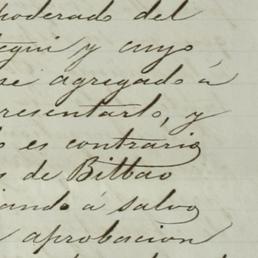 poderado del
egui y cuyo
se agregado á
resentarlo, y
o es contrario
s de Bilbao
iando á salvo
aprobacion